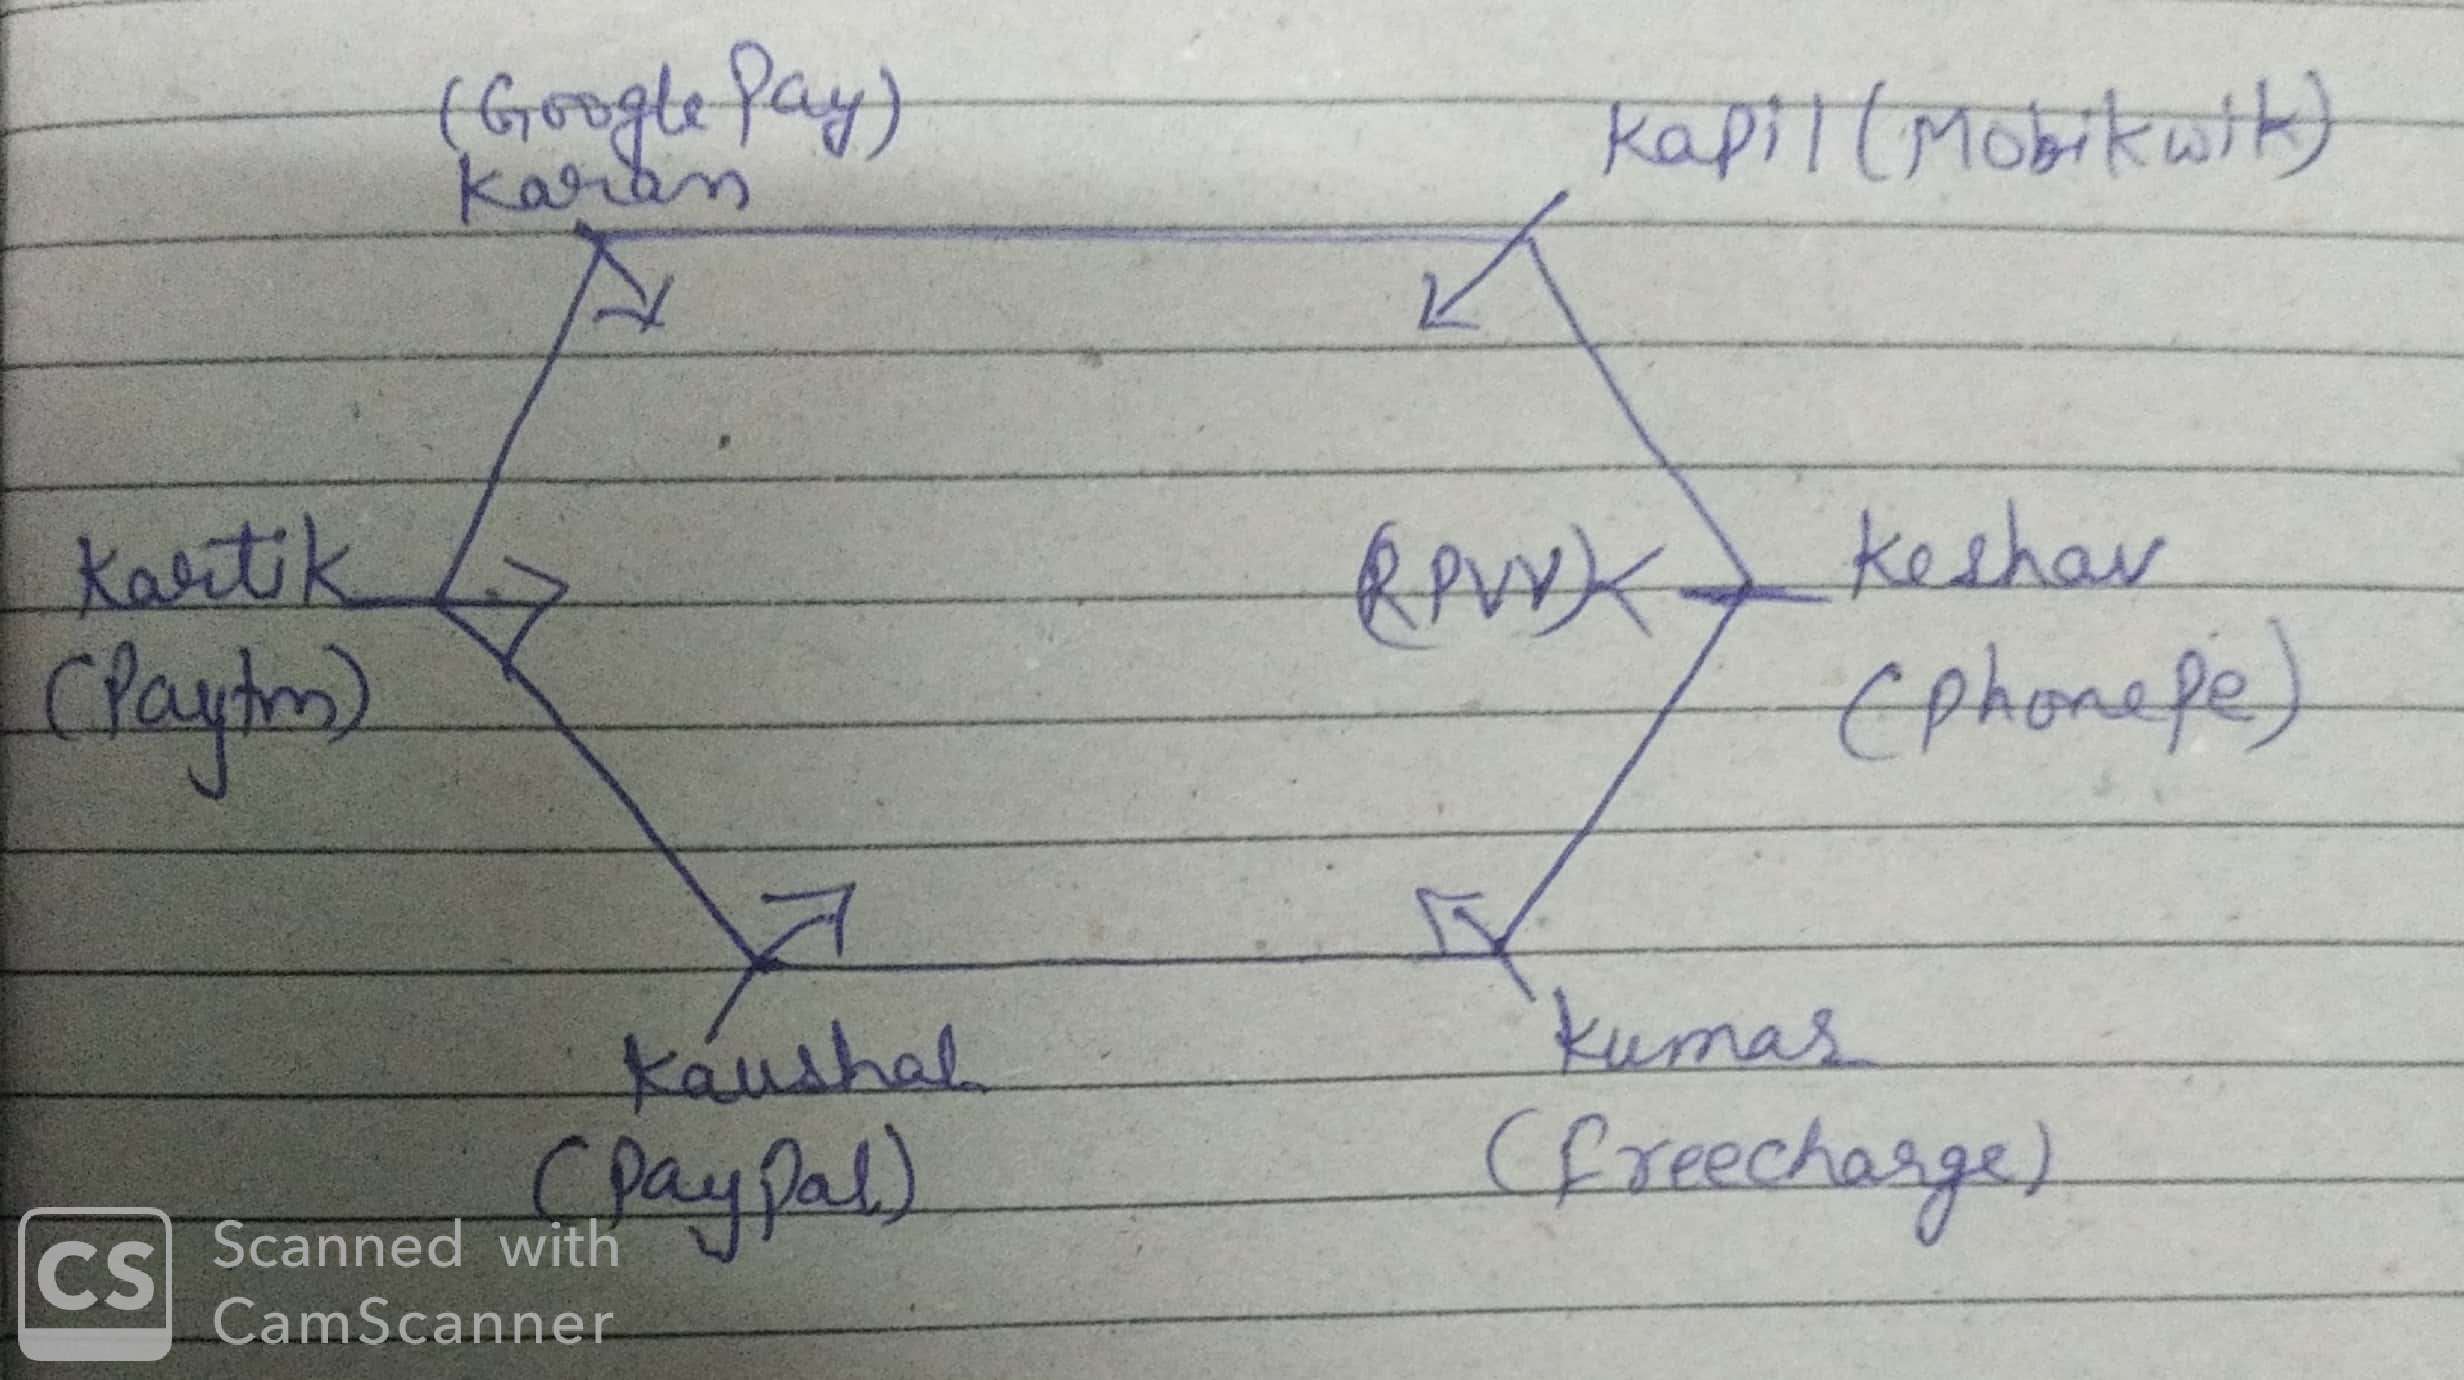 (Google Pay)
Karan
Kapil (Mobikwik)
Kartik
(Paytm)
(RPVV)
Keshav
(Phonepe)
Kaushal
(PayPal)
Kumar
(freecharge)
CS
Scanned with
CamScanner